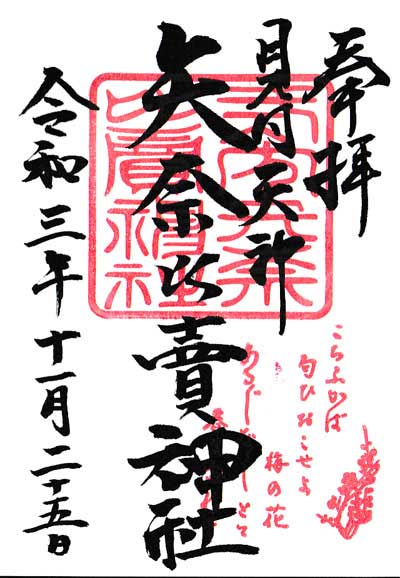 奉拝
見付天神
矢奈比賣神社
令和三年十一月二十五日
矢奈比賣神社
こちふかば
匂ひおこせよ
梅の花
あるじなしとて